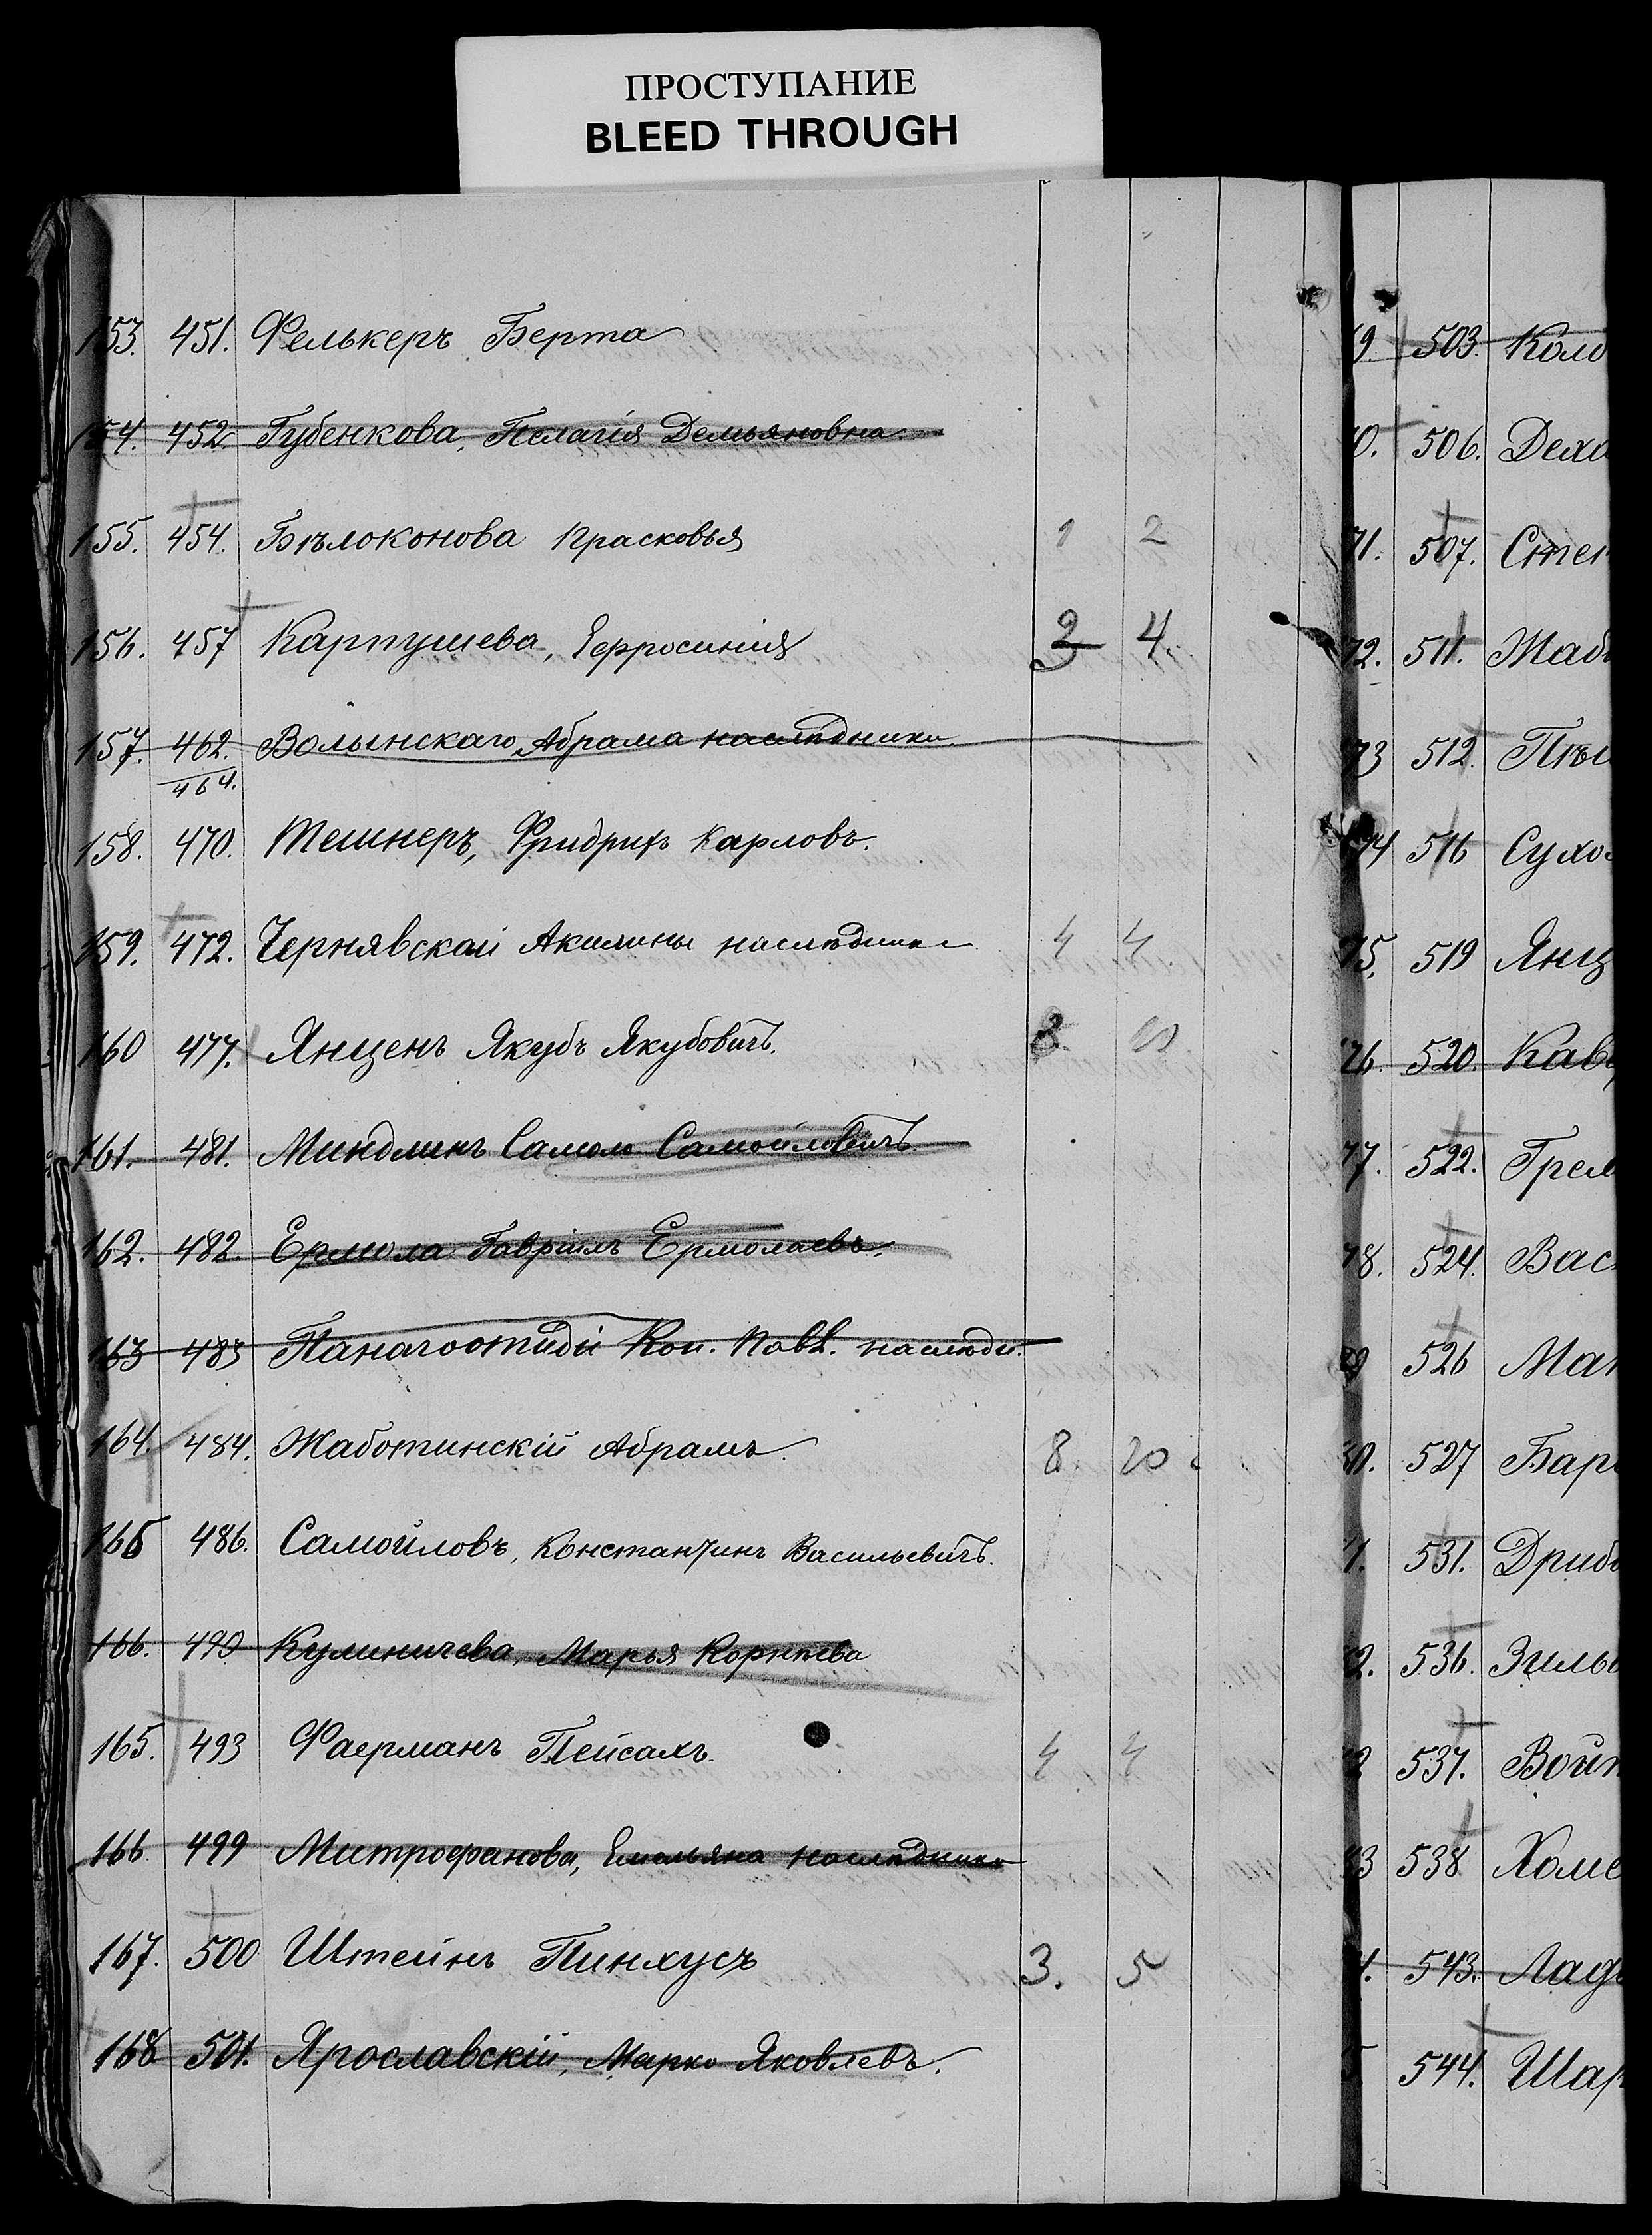 ПРОСТУПАНИЕ
BLEED THROUGH
153. 451. Фелькеръ Берта
154. 452 Губенкова, Пелагія Демьяновна
155. 454. Бѣлоконова Прасковья 1 2
156. 457 Карпушева, Ефросинія 3 4.
157. 462. Волынскаго Абрама наслѣдники
464.
158. 470. Тешнеръ, Фридрихъ Карловъ.
159. 472. Чернявской Акилины наслѣдники 4 4
160 477. Янценъ Якубъ Якубовичъ. 8
161. 481. Миндлинъ Самоло Самойловичъ.
162. 482. Ермола Гавріилъ Ермолаевъ.
163 483 Панагоотиди Кон. Павл. наслѣдн.
164. 484. Жаботинскій Абрамъ. 8 20
165 486. Самойловъ, Константинъ Васильевичъ.
166. 490 Кулиничева, Марья Корнѣева
165. 493 Фаерманъ Пейсахъ. 4 4
166 499 Митрофанова, Емельяна наслѣдники
167. 500 Штейнъ Пинхусъ 3. 5
168 501. Ярославскій, Марко Яковлевъ.
9 503. Коло
0. 506. Деха
71. 507. Степ
72. 511. Жаб
73 512. Пѣш
74 516 Сухо
75. 519 Янц
76. 520. Кав
77. 522. Грем
78. 524. Вас
9 526 Мат
80. 527 Бар
1. 531. Дриб
2. 536. Зиль
2 537. Войт
83 538 Хоме
4. 543. Лад
5. 544. Шар